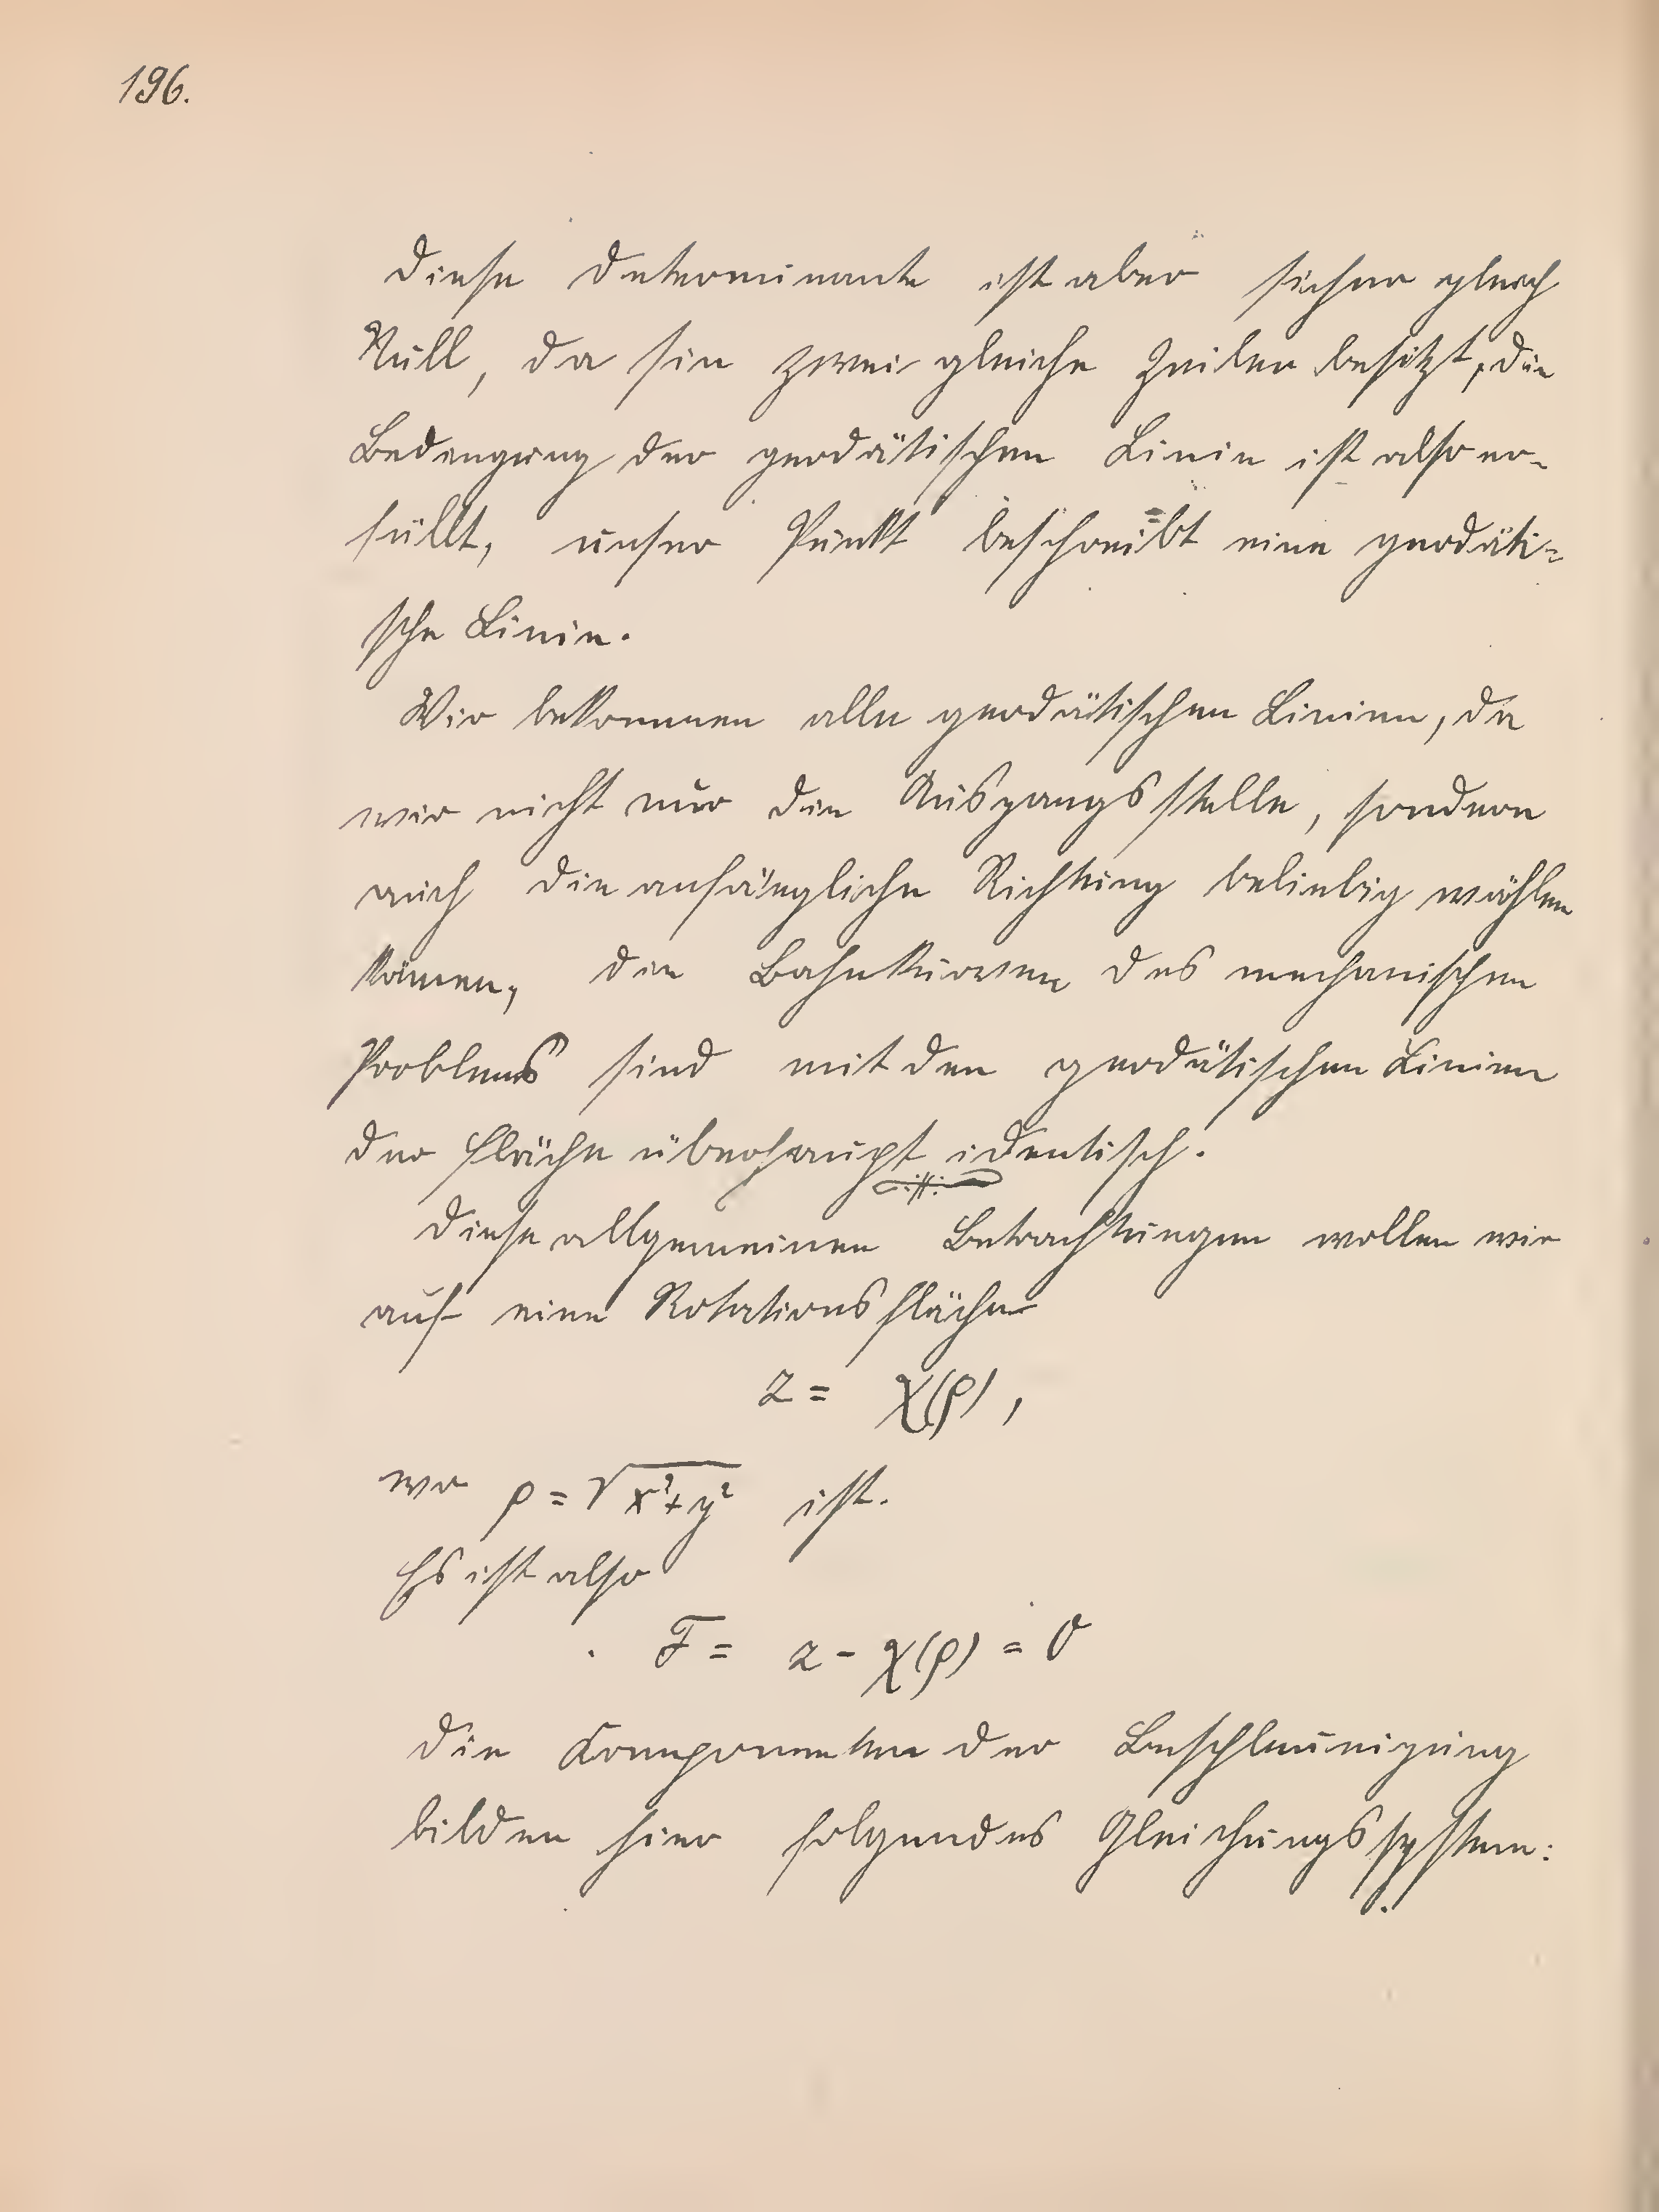 196.
Diese Determinante ist aber sicher gleich
Null, da sie zwei gleiche Zeilen besitzt, die
Bedingung der geodätischen Linie ist also er-
füllt, unser Punkt beschreibt eine geodäti-
sche Linie.
Wir bekommen alle geodätischen Linien, da
wir nicht nur die Ausgangsstelle, sondern
auch die anfängliche Richtung beliebig wählen
können, die Bahnkurven des mechanischen
Problems sind mit den geodätischen Linien
der Fläche überhaupt identisch.
Diese allgemeinen Betrachtungen wollen wir
auf eine Rotationsfläche
z = χ(ρ),
wo ρ = √x²+y² ist.
Es ist also
F = z - χ(ρ) = 0
Die Componenten der Beschleunigung
bilden hier folgendes Gleichungssystem: